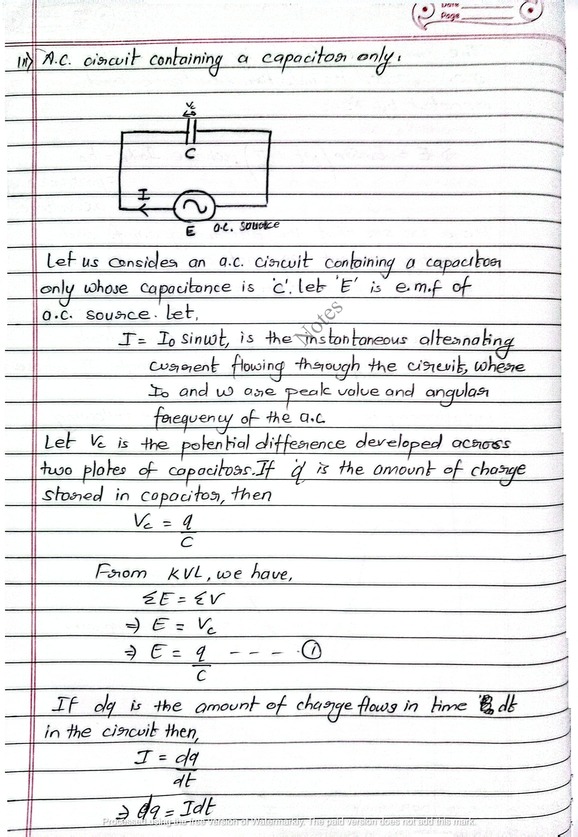 Date
Page
iii) A.C. circuit containing a capacitor only.
Vc
C
I
E a.c. source
Let us consider an a.c. circuit containing a capacitor
only whose capacitance is 'C'. let 'E' is e.m.f of
a.c. source. Let,
I = I₀ sinωt, is the instantaneous alternating
current flowing through the circuit, where
I₀ and ω are peak value and angular
frequency of the a.c.
Notes
Let Vc is the potential difference developed across
two plates of capacitors. If 'q' is the amount of charge
stored in capacitor, then
Vc = q
C
From KVL, we have,
ΣE = ΣV
⇒ E = Vc
⇒ E = q - - - - ①
C
If dq is the amount of charge flows in time dt
in the circuit then,
I = dq
dt
⇒ dq = Idt
Processed using the free version of Watermarkly. The paid version does not add this mark.